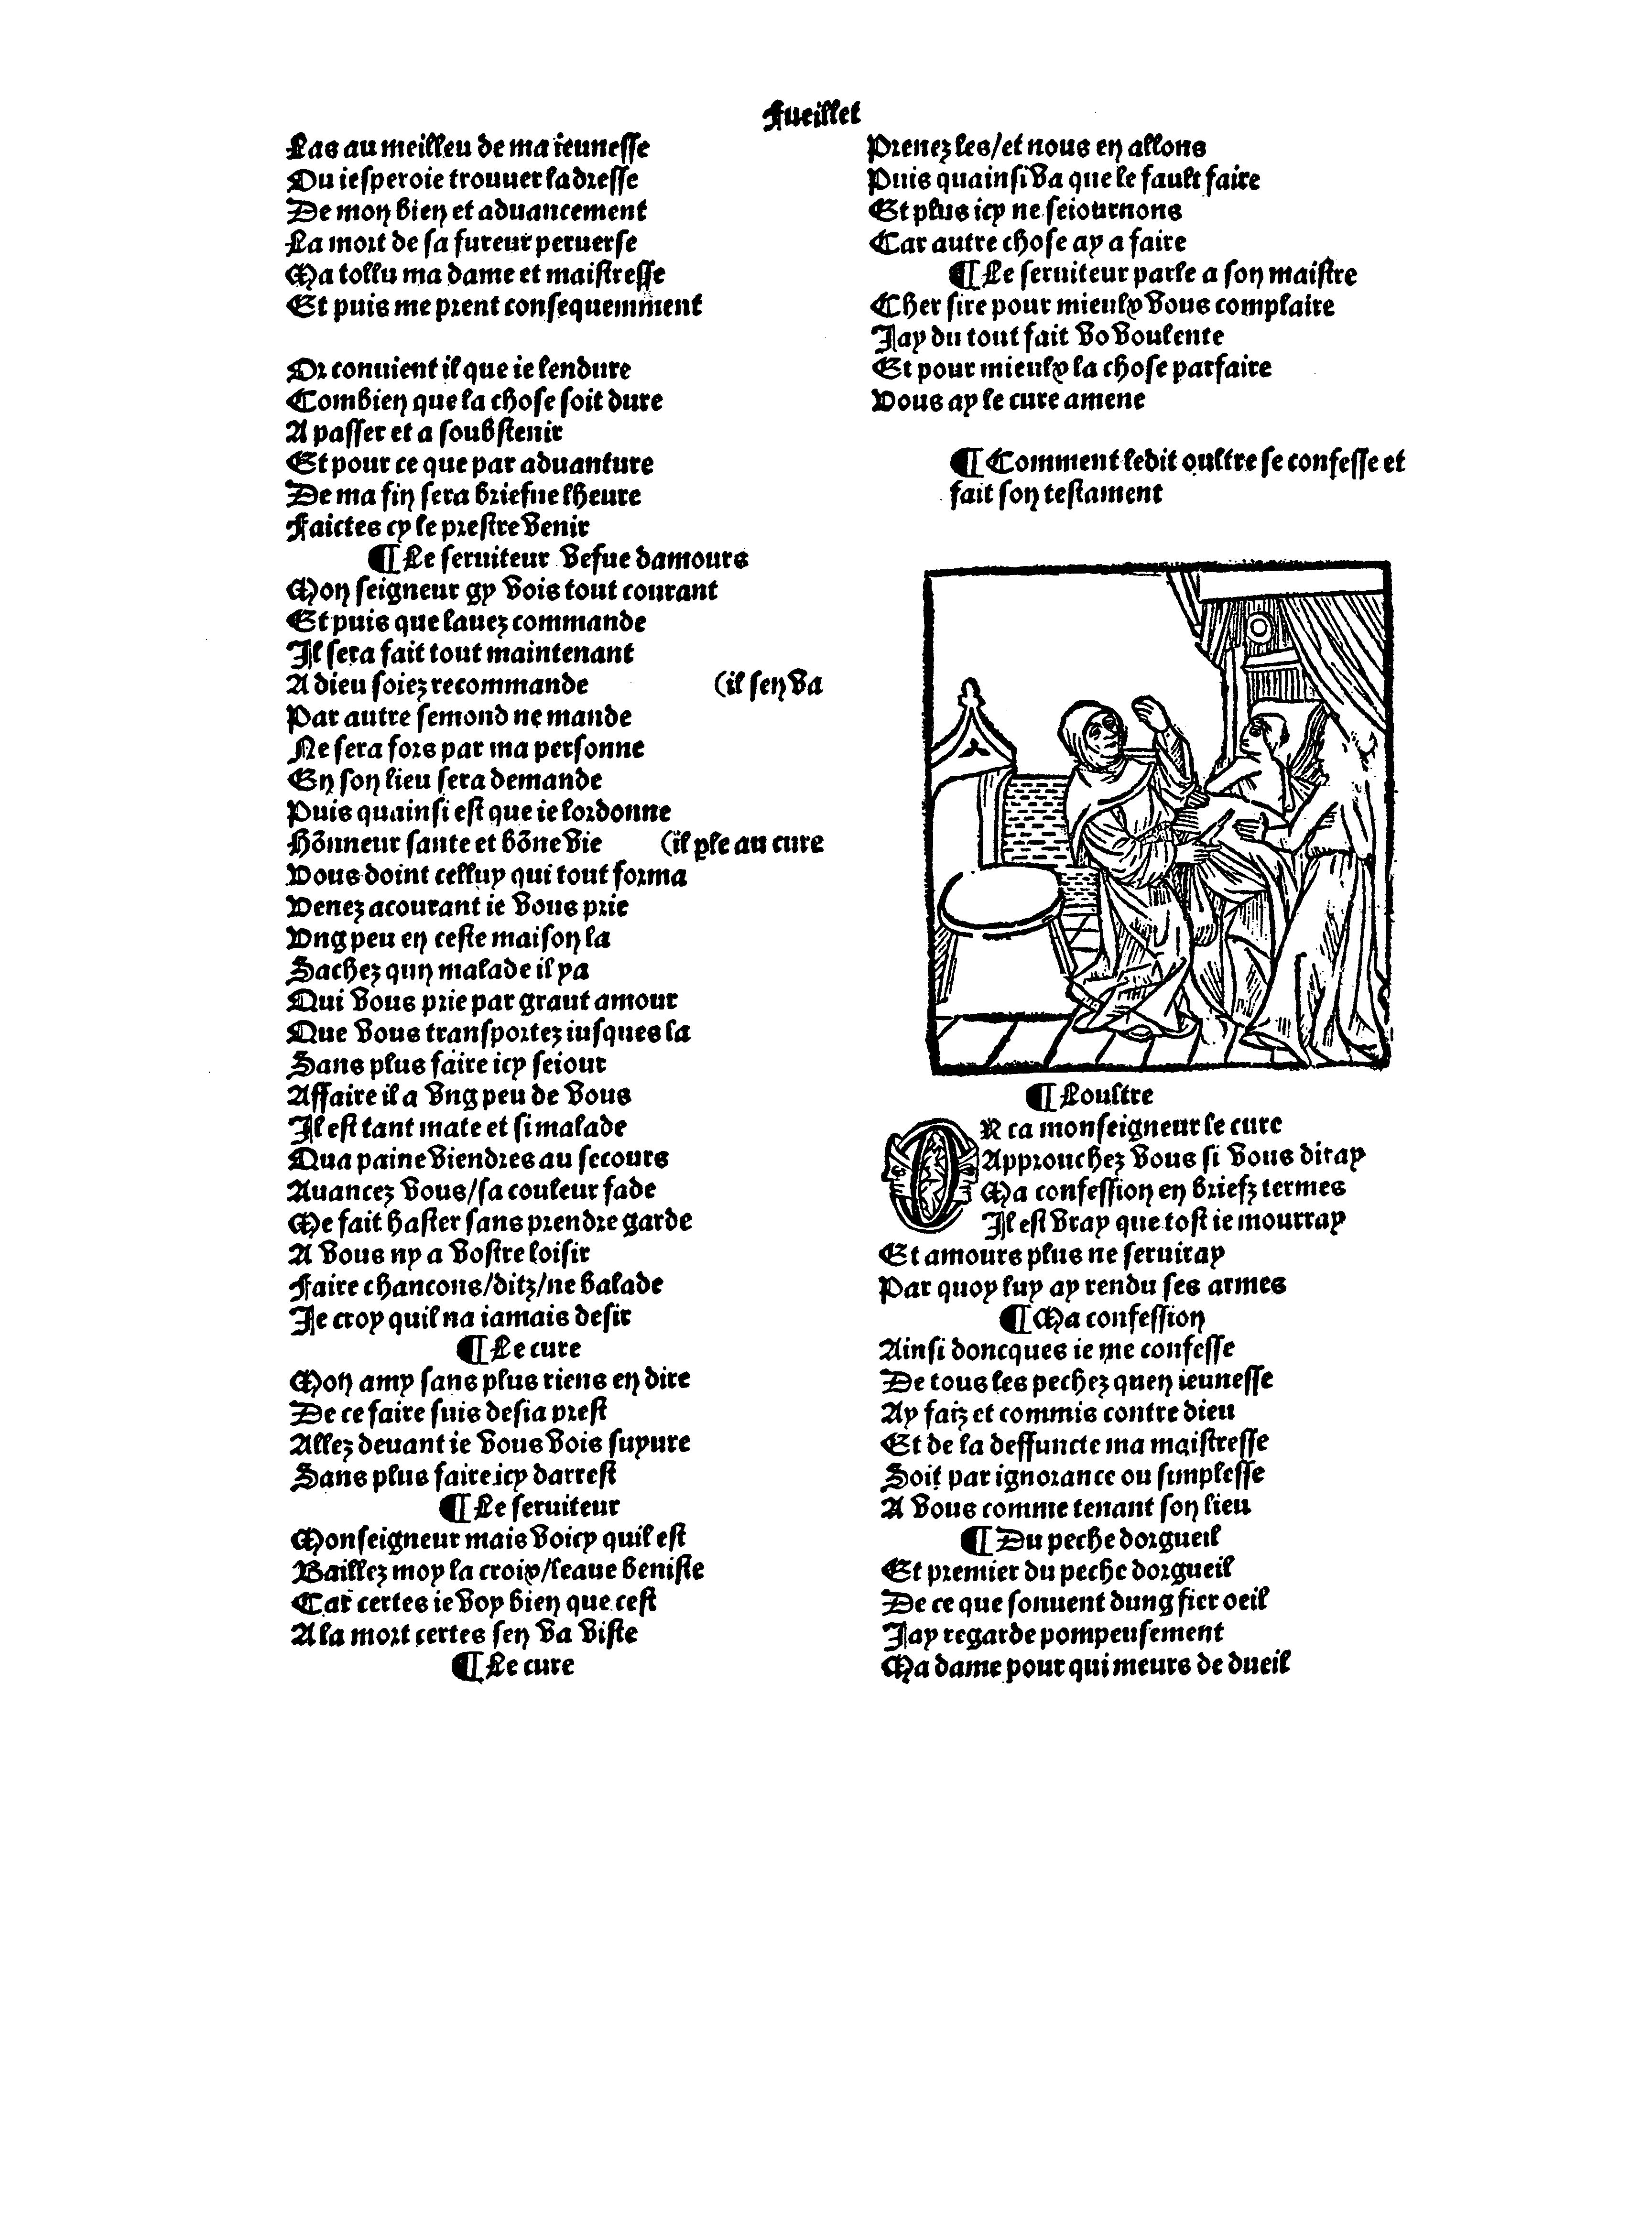 Fueillet
Las au meilleu de ma ieunesse
Ou iesperoie trouuer ladresse
De mon bien et aduancement
La mort de sa fureur peruerse
Ma tollu ma dame et maistresse
Et puis me prent consequemment
Or conuient il que ie lendure
Combien que la chose soit dure
A passer et a soubstenir
Et pour ce que par aduanture
De ma fin sera briefue lheure
Faictes cy le prestre venir
¶ Le seruiteur vefue damours
Mon seigneur gy vois tout courant
Et puis que lauez commande
Il sera fait tout maintenant
A dieu soiez recommande (il sen va
Par autre semond ne mande
Ne sera fors par ma personne
En son lieu sera demande
Puis quainsi est que ie lordonne
Hõnneur sante et bõne vie (il ple au cure
Vous doint celluy qui tout forma
Venez acourant ie vous prie
Vng peu en ceste maison la
Sachez qun malade il ya
Qui vous prie par graut amour
Que vous transportez iusques la
Sans plus faire icy seiour
Affaire il a vng peu de vous
Il est tant mate et si malade
Qua paine viendres au secours
Auancez vous/sa couleur fade
Me fait haster sans prendre garde
A vous ny a vostre loisir
Faire chancons/ditz/ne balade
Je croy quil na iamais desir
¶ Le cure
Mon amy sans plus riens en dire
De ce faire suis desia prest
Allez deuant ie vous vois suyure
Sans plus faire icy darrest
¶ Le seruiteur
Monseigneur mais voicy quil est
Baillez moy la croix/leaue beniste
Car certes ie voy bien que cest
A la mort certes sen va viste
¶ Le cure
Prenez les/et nous en allons
Puis quainsi va que le fault faire
Et plus icy ne seiournons
Car autre chose ay a faire
¶ Le seruiteur parle a son maistre
Cher sire pour mieulx vous complaire
Jay du tout fait vo voulente
Et pour mieulx la chose parfaire
Vous ay le cure amene
¶ Comment ledit oultre se confesse et
fait son testament
¶ Loultre
OR ca monseigneur le cure
Approuchez vous si vous diray
Ma confession en briefz termes
Il est vray que tost ie mourray
Et amours plus ne seruiray
Par quoy luy ay rendu ses armes
¶ Ma confession
Ainsi doncques ie me confesse
De tous les pechez quen ieunesse
Ay faiz et commis contre dieu
Et de la deffuncte ma maistresse
Soit par ignorance ou simplesse
A vous comme tenant son lieu
¶ Du peche dorgueil
Et premier du peche dorgueil
De ce que souuent dung fier oeil
Jay regarde pompeusement
Ma dame pour qui meurs de dueil